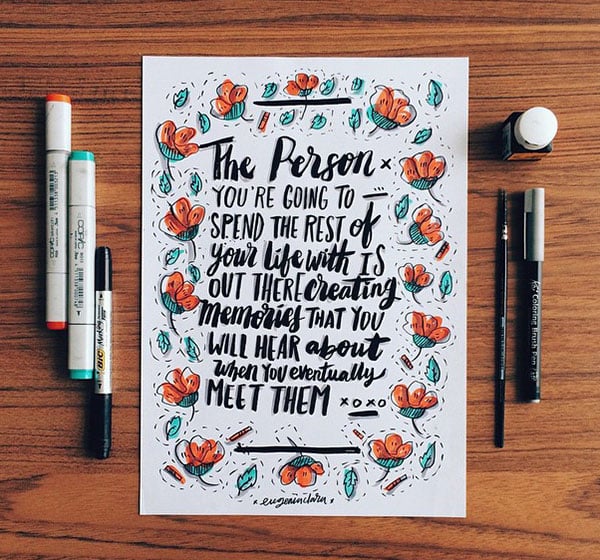 The Person x
YOU'RE GOING TO
SPEND THE REST of
your life with IS
OUT THERE creating
memories THAT YOU
WILL HEAR about
when you eventually
MEET THEM xoxo
* eugeniaclara *
COPIC
COPIC
BIC Marking
Coloring Brush Pen